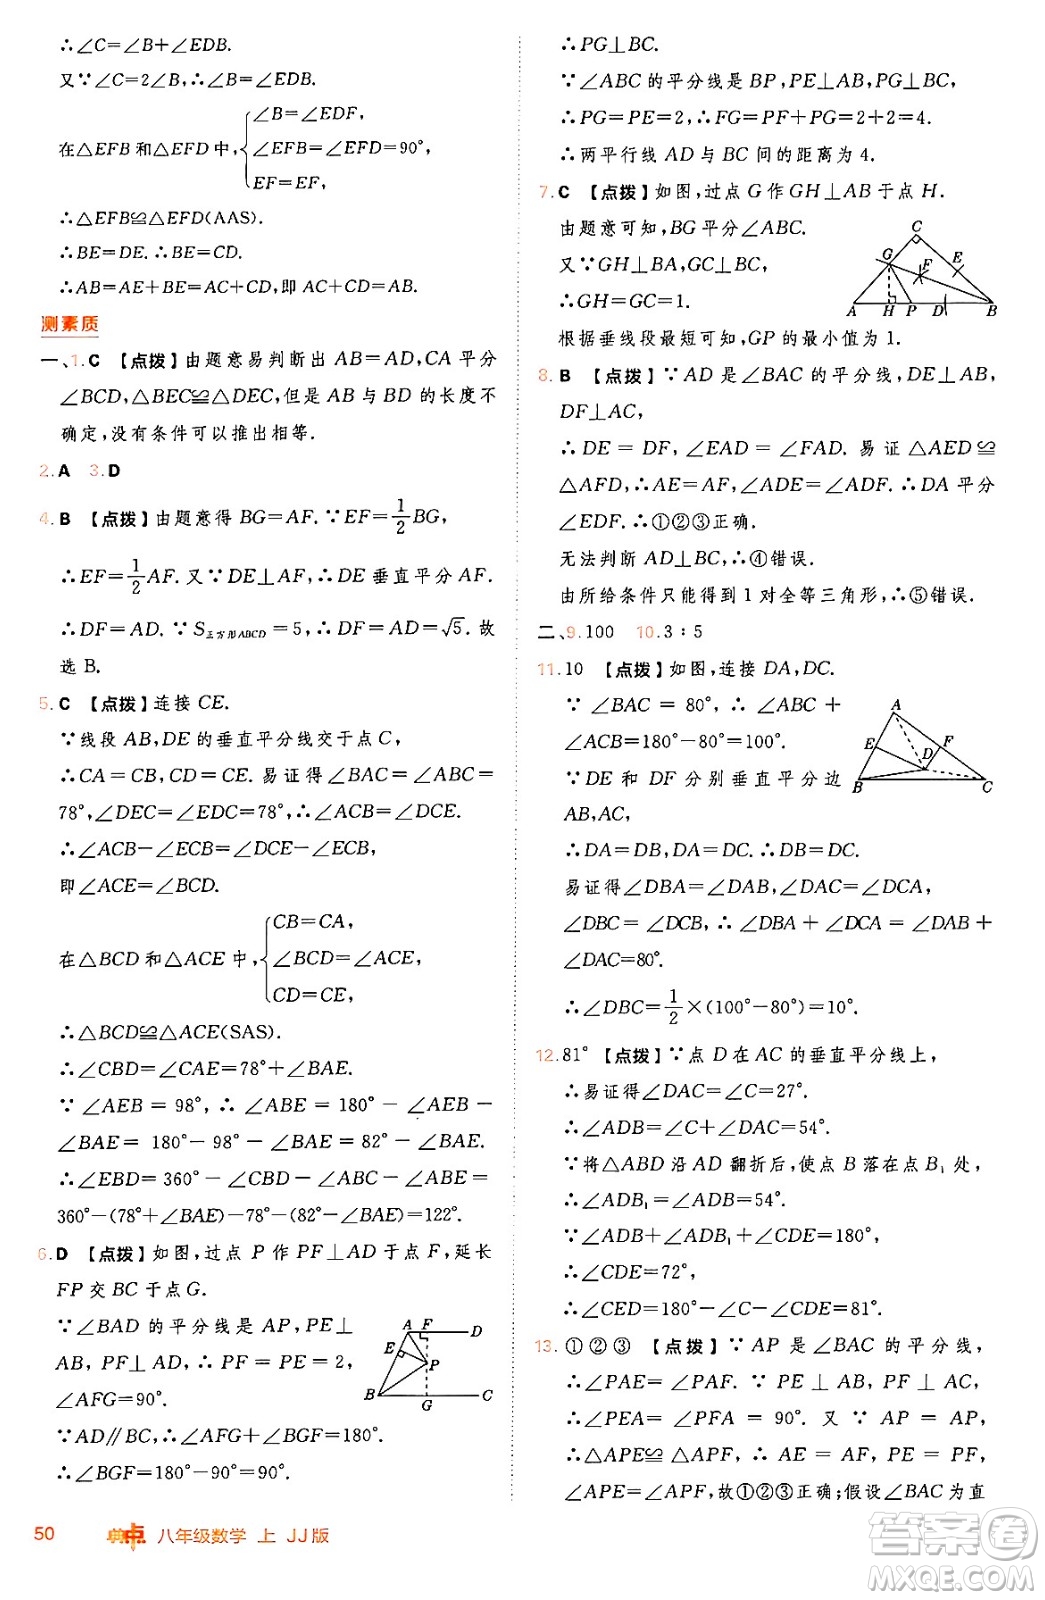 ∴∠C=∠B+∠EDB.
又∵∠C=2∠B,∴∠B=∠EDB.
在△EFB和△EFD中,{∠B=∠EDF,
∠EFB=∠EFD=90°,
EF=EF,
∴△EFB≌△EFD(AAS).
∴BE=DE.∴BE=CD.
∴AB=AE+BE=AC+CD,即AC+CD=AB.
测素质
一、1.C 【点拨】由题意易判断出AB=AD,CA平分
∠BCD,△BEC≌△DEC,但是AB与BD的长度不
确定,没有条件可以推出相等.
2.A 3.D
4.B 【点拨】由题意得BG=AF.∵EF=1/2BG,
∴EF=1/2AF.又∵DE⊥AF,∴DE垂直平分AF.
∴DF=AD.∵S正方形ABCD=5,∴DF=AD=√5.故
选B.
5.C 【点拨】连接CE.
∵线段AB,DE的垂直平分线交于点C,
∴CA=CB,CD=CE.易证得∠BAC=∠ABC=
78°,∠DEC=∠EDC=78°,∴∠ACB=∠DCE.
∴∠ACB-∠ECB=∠DCE-∠ECB,
即∠ACE=∠BCD.
在△BCD和△ACE中,{CB=CA,
∠BCD=∠ACE,
CD=CE,
∴△BCD≌△ACE(SAS).
∴∠CBD=∠CAE=78°+∠BAE.
∵∠AEB=98°,∴∠ABE=180°-∠AEB-
∠BAE=180°-98°-∠BAE=82°-∠BAE.
∴∠EBD=360°-∠ABC-∠CBD-∠ABE=
360°-(78°+∠BAE)-78°-(82°-∠BAE)=122°.
6.D 【点拨】如图,过点P作PF⊥AD于点F,延长
FP交BC于点G.
∵∠BAD的平分线是AP,PE⊥
AB,PF⊥AD,∴PF=PE=2,
∠AFG=90°.
∵AD∥BC,∴∠AFG+∠BGF=180°.
∴∠BGF=180°-90°=90°.
A F D
E
P
B G C
∴PG⊥BC.
∵∠ABC的平分线是BP,PE⊥AB,PG⊥BC,
∴PG=PE=2,∴FG=PF+PG=2+2=4.
∴两平行线AD与BC间的距离为4.
7.C 【点拨】如图,过点G作GH⊥AB于点H.
由题意可知,BG平分∠ABC.
又∵GH⊥BA,GC⊥BC,
∴GH=GC=1.
根据垂线段最短可知,GP的最小值为1.
C
G F E
A H P D B
8.B 【点拨】∵AD是∠BAC的平分线,DE⊥AB,
DF⊥AC,
∴DE=DF,∠EAD=∠FAD.易证△AED≌
△AFD,∴AE=AF,∠ADE=∠ADF.∴DA平分
∠EDF.∴①②③正确.
无法判断AD⊥BC,∴④错误.
由所给条件只能得到1对全等三角形,∴⑤错误.
二、9.100 10.3:5
11.10 【点拨】如图,连接DA,DC.
∵∠BAC=80°,∴∠ABC+
∠ACB=180°-80°=100°.
∵DE和DF分别垂直平分边
AB,AC,
∴DA=DB,DA=DC.∴DB=DC.
A
E F
D
B C
易证得∠DBA=∠DAB,∠DAC=∠DCA,
∠DBC=∠DCB,∴∠DBA+∠DCA=∠DAB+
∠DAC=80°.
∴∠DBC=1/2×(100°-80°)=10°.
12.81° 【点拨】∵点D在AC的垂直平分线上,
∴易证得∠DAC=∠C=27°.
∴∠ADB=∠C+∠DAC=54°.
∵将△ABD沿AD翻折后,使点B落在点B₁处,
∴∠ADB₁=∠ADB=54°.
∵∠ADB+∠ADB₁+∠CDE=180°,
∴∠CDE=72°.
∴∠CED=180°-∠C-∠CDE=81°.
13.①②③ 【点拨】∵AP是∠BAC的平分线,
∴∠PAE=∠PAF.∵PE⊥AB,PF⊥AC,
∴∠PEA=∠PFA=90°.又∵AP=AP,
∴△APE≌△APF,∴AE=AF,PE=PF,
∠APE=∠APF.故①②③正确;假设BC与AP垂直
50 典中点 八年级数学 上 JJ版
答案圈
MXQE.COM